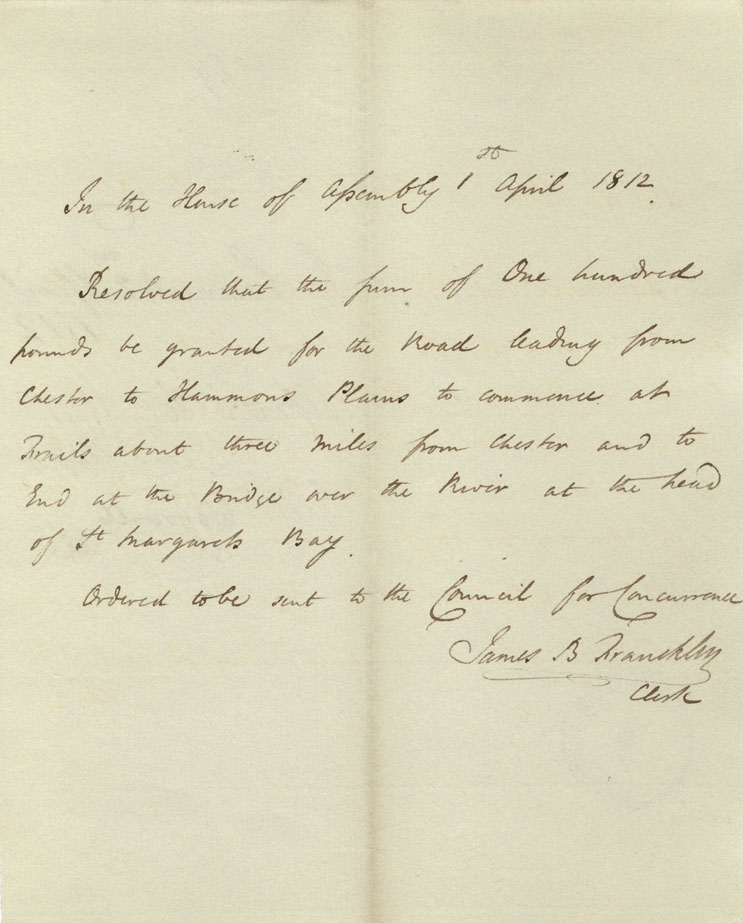 In the House of Assembly 1st April 1812.
Resolved that the sum of One hundred
pounds be granted for the Road leading from
Chester to Hammons Plains to commence at
Frails about three Miles from Chester and to
End at the Bridge over the River at the head
of St Margarets Bay.
Ordered to be sent to the Council for Concurrence
James B Franckling
Clerk